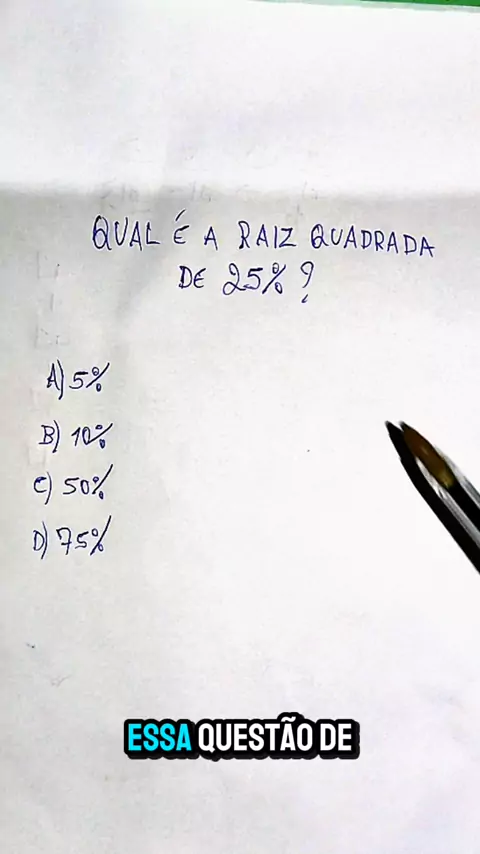 QUAL É A RAIZ QUADRADA
DE 25%?
A) 5%
B) 10%
C) 50%
D) 75%
ESSA QUESTÃO DE